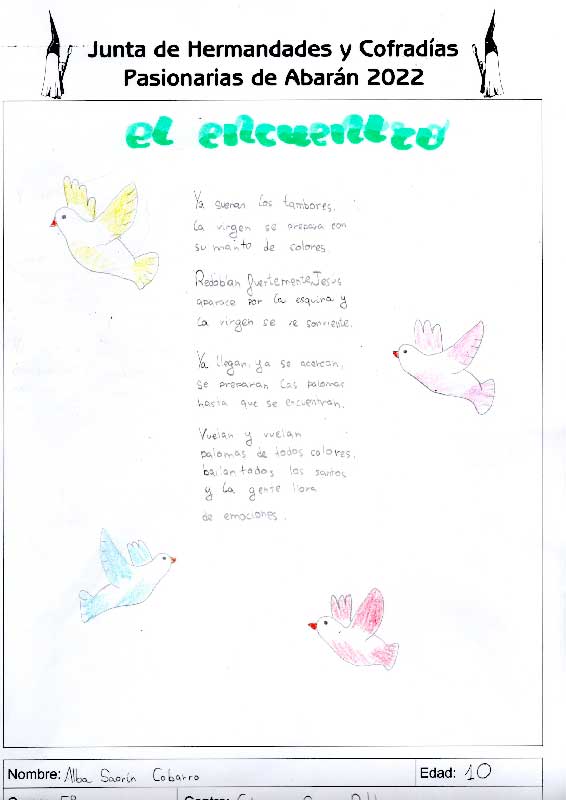 Junta de Hermandades y Cofradías
Pasionarias de Abarán 2022
el encuentro
Ya suenan los tambores,
la virgen se prepara con
su manto de colores.
Redoblan fuertemente, Jesus
aparece por la esquina y
la virgen se ve sonriente.
Ya llegan, ya se acercan,
se preparan las palomas
hasta que se encuentran.
Vuelan y vuelan
palomas de todos colores,
bailan todos los santos
y la gente llora
de emociones.
Nombre: Alba Saorín Cobarro
Edad: 10